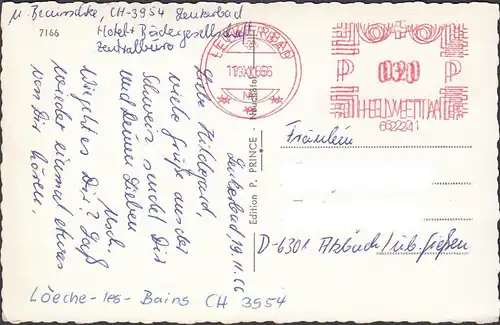 M. Beurnseke, CH-3954 Leukerbad
Hotel & Bädergesellschaft
Zentralbüro
7166
LEUKERBAD
P 020 P
HELVETIA
Leukerbad, 19.11.66
Liebe Hildegard,
viele Grüße aus der
Schweiz sendet Dir
und Deinen Lieben
Wie geht es Dir? Laß
wieder einmal etwas
von Dir hören.
Edition P. PRINCE - Neuchâtel
Fräulein
D-6301 Atzbach / üb. Gießen
Loèche-les-Bains CH 3954